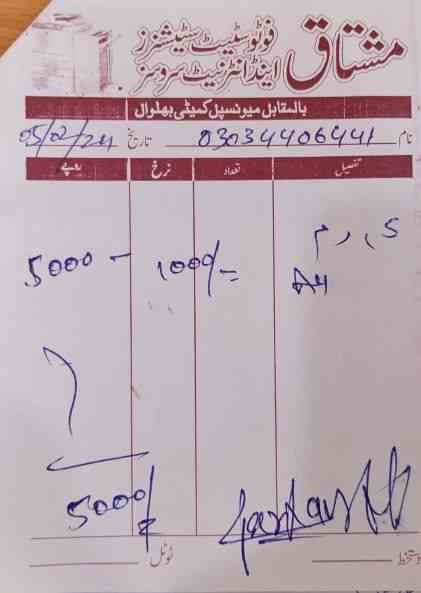 مشتاق فوٹو سٹیٹ سٹیشنرز
اینڈ انٹرنیٹ سروسز
بالمقابل میونسپل کمیٹی بھلوال
نام 03034406441 تاریخ 05/02/24
تفصیل تعداد نرخ روپے
1000/= 5000 -
A4
5000/
دستخط ٹوٹل